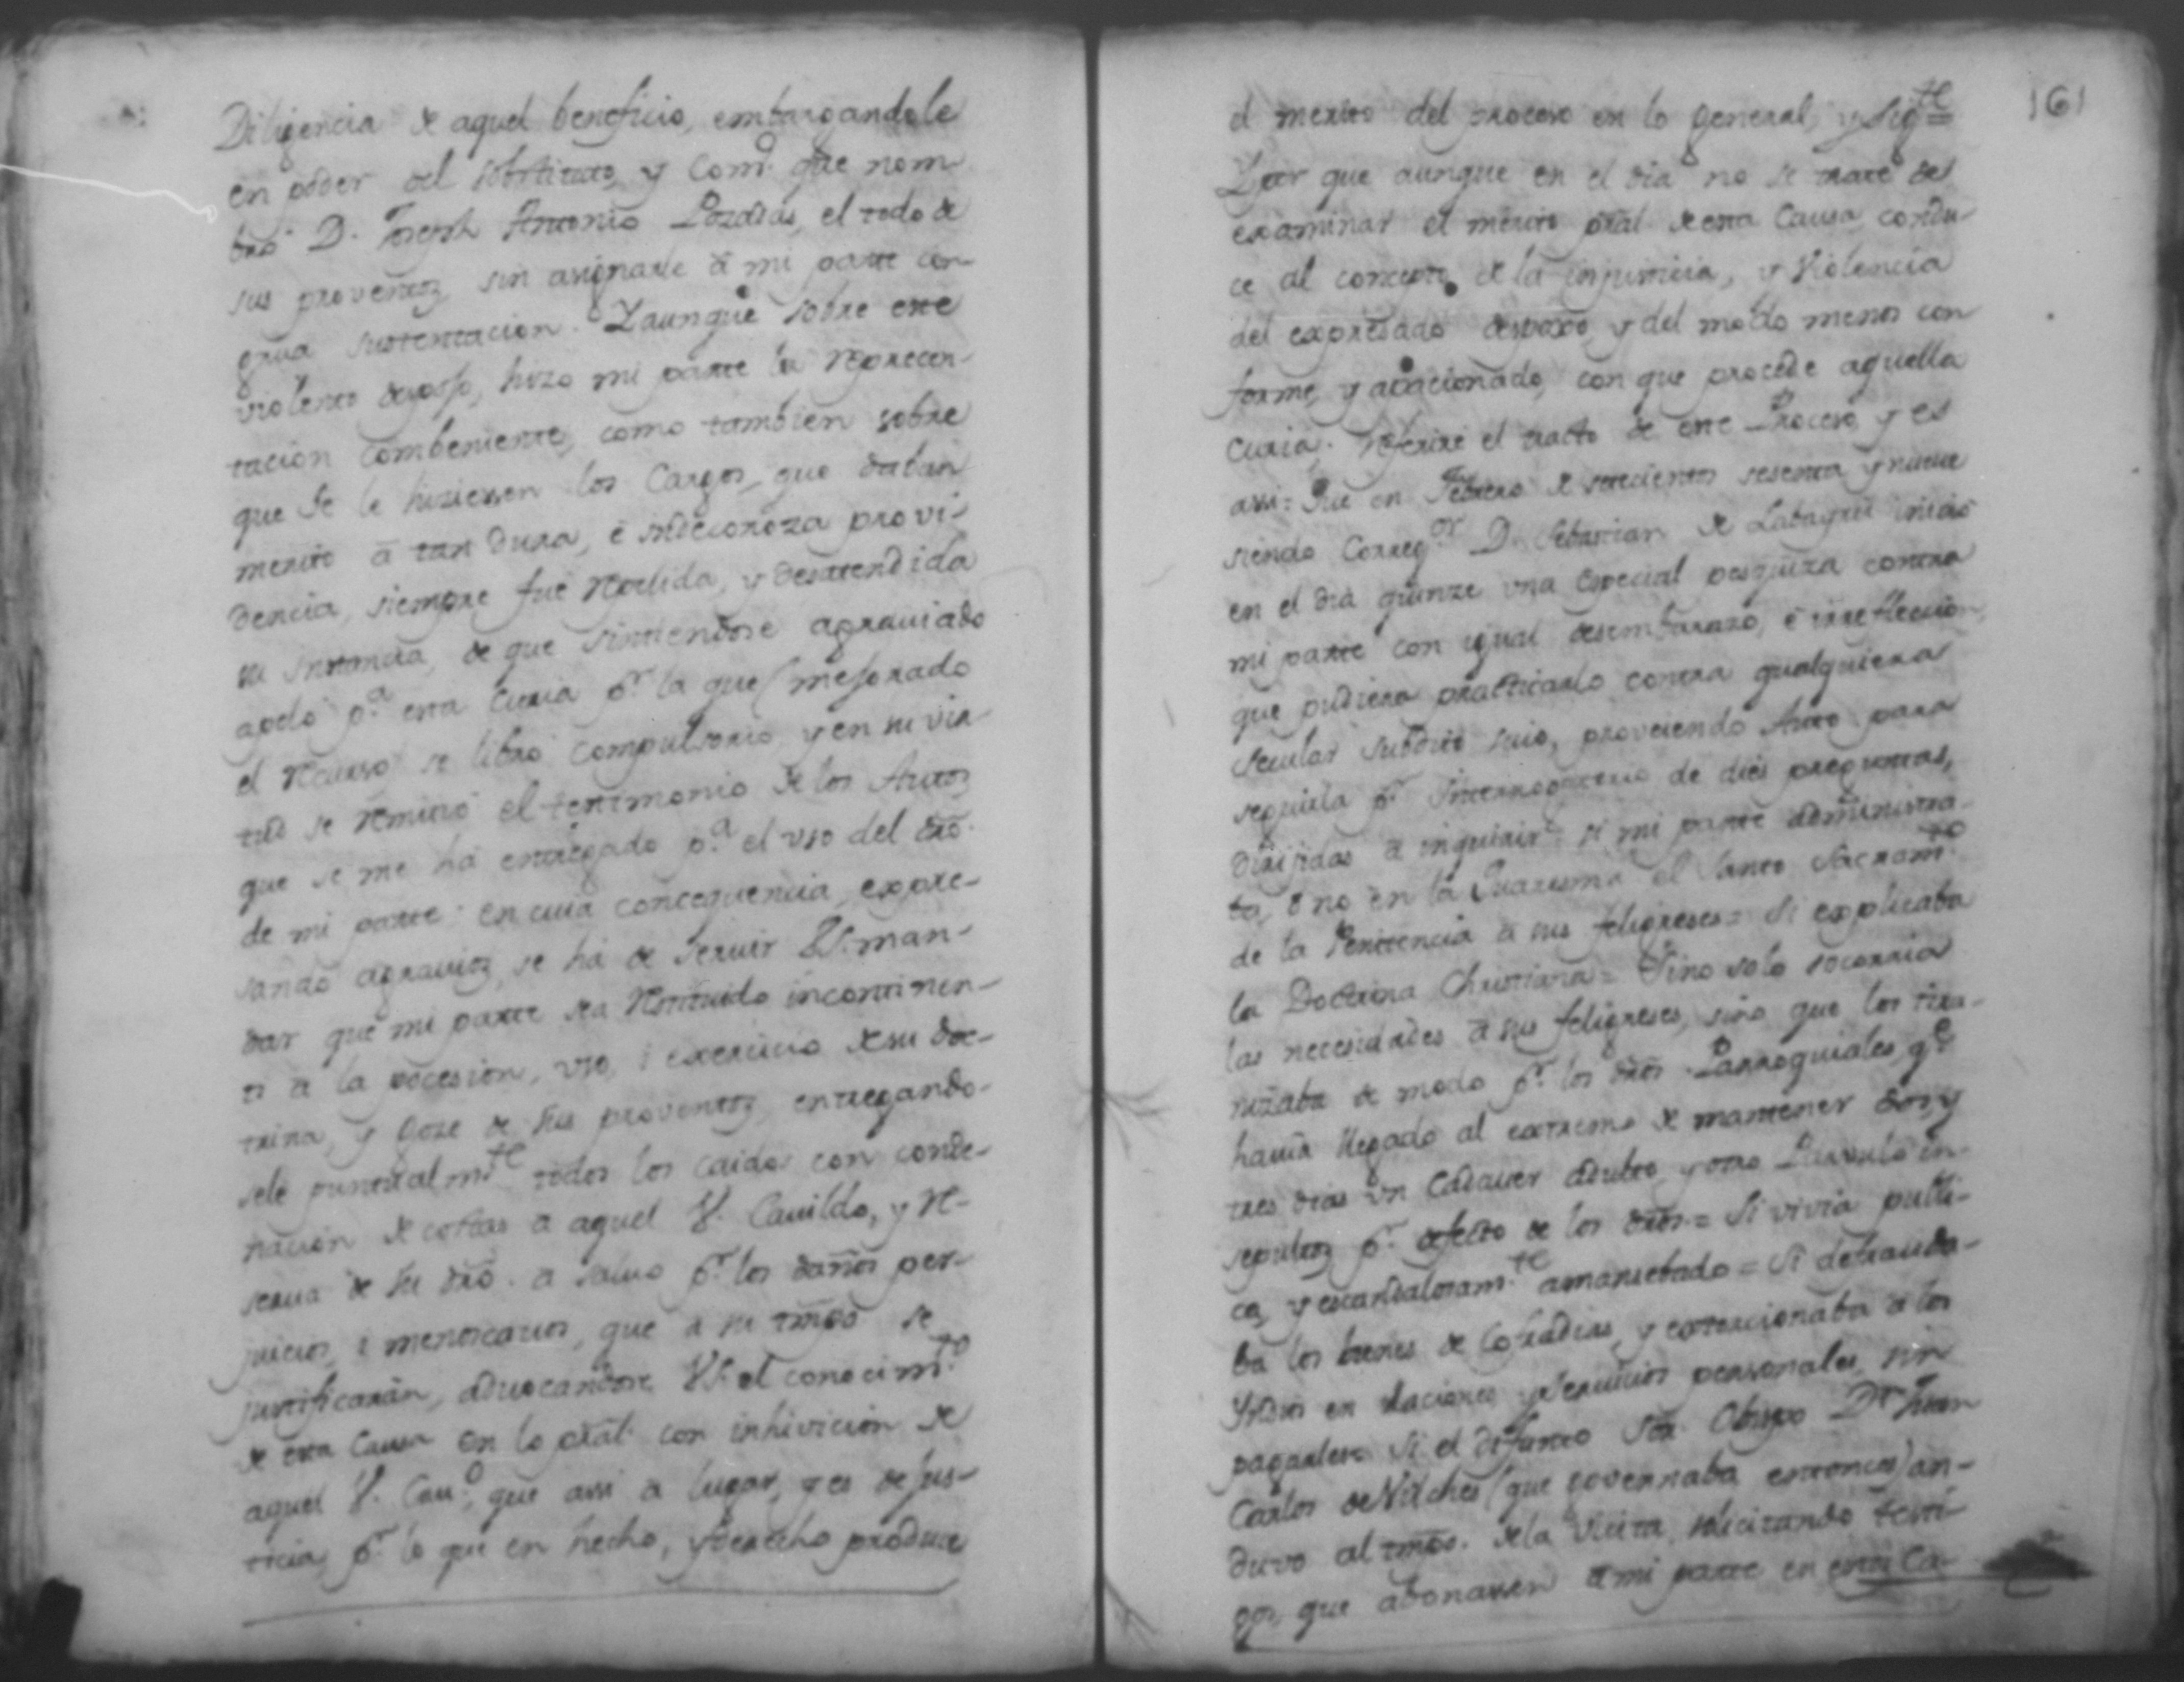 Diligencia de aquel beneficio, embargandole
en poder del sobstituto, y Com.º que nom-
bró D. Joseph Antonio Pozdias, el todo de
sus proventos, sin asignarle â mi parte con-
grua sustentacion. Y aunque sobre este
violento despojo, hizo mi parte la reprecen-
tacion combeniente, como tambien sobre
que se le hiziessen los Cargos, que daban
merito â tan dura, é indecoroza provi-
dencia, siempre fue repelida, y desatendida
su instancia, de que sintiendose agraviado
apeló p.ª esta Curia p.r la que (mejorado
el recurso) se libró compulsorio, y en su vir-
tud se remitió el testimonio de los Autos
que se me há entregado p.ª el uso del dro.
de mi parte: en cuia concequencia, expre-
sando agravios, se há de servir V.S. man-
dar que mi parte sea restituido incontinen-
ti â la pocesion, uso, i exercicio de su doc-
trina, y goze de sus proventos, entregando-
sele puntualm.te todos los caidos con conde-
nacion de costas â aquel V. Cavildo, y re-
serva de su dro. a salvo p.r los daños per-
juicios, é menoscavos, que â su tmpo se
justificarán, advocandose V.S. el conocim.to
de esta Causa en lo pral. con inhivicion de
aquel V. Cav.º, que assi â lugar, y es de jus-
ticia, p.r lo que en hecho, y derecho produce
161
el merito del proceso en lo general, y sig.te =
Y por que aunque en el dia no se trate de
examinar el merito pral. de esta Causa, condu-
ce al concepto de la injusticia, y violencia
del expresado despoxo, y del modo menos con
forme, y acicionado, con que procede aquella
Curia; referiré el tracto de este Proceso, y es
assi: Que en Febrero de setecientos sesenta y nueve
siendo Correg.or D. Sebastian de Labayrú inició
en el dia quinze una especial pesquiza contra
mi parte con igual desembarazo, é irreflecion,
que pudiera practicarlo contra qualquiera
secular subdito suio, proveiendo Auto para
seguirla p.r Interrogatorio de dies preguntas,
dirijidas â inquirir: si mi parte administra-
ba, ô no en la Quaresma el Santo Sacram.to
de la Penitencia â sus feligreses = Si explicaba
la Doctrina Christiana = Si no solo socorria
las necesidades â sus feligreses, sino que los tira-
nizaba de modo p.r los dros. Parroquiales, q.e
havia llegado al extremo de mantener dos, y
tres dias un Cadaver adulto, y otro Parvulo in-
sepultos p.r defecto de los dros. = Si vivia publi-
ca, y escandalosam.te amansebado = Si defrauda-
ba los bienes de Cofradias, y extorcionaba â los
Yndios en raciones, y servicios personales, sin
pagarles = Si el difunto Sor. Obispo D.r Juan
Carlos de Vilches (que governaba entonces) an-
duvo al tmpo. de la Visita, solicitando testi-
gos, que abonassen â mi parte en estos Ca-